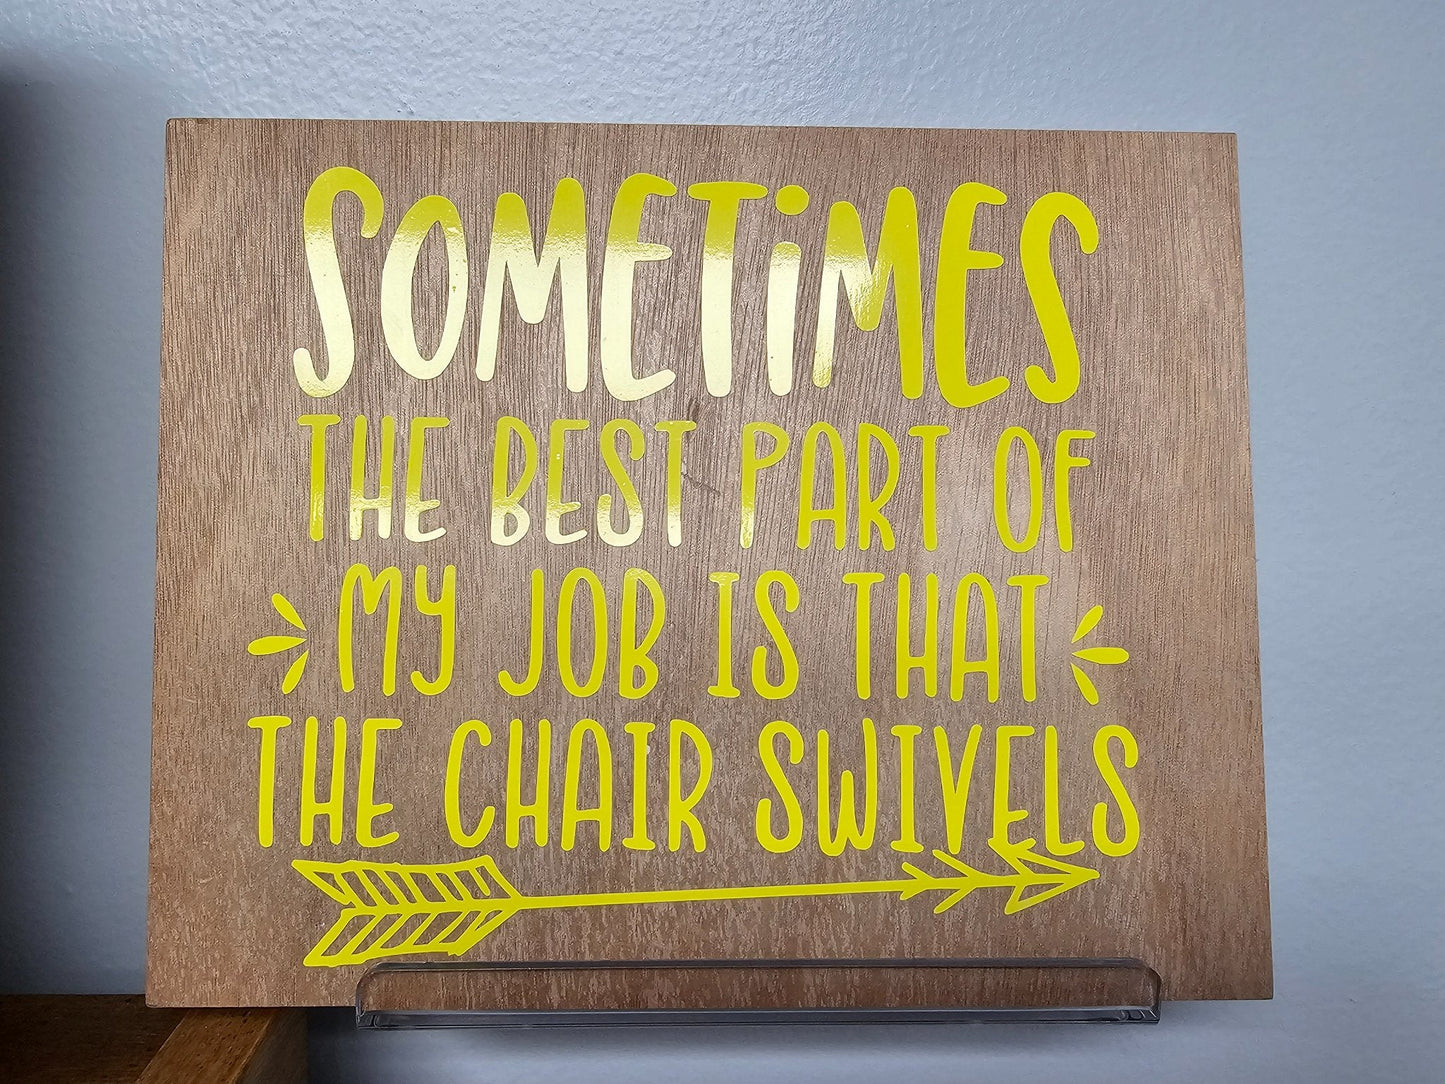 SOMETiMES
THE BEST PART OF
MY JOB IS THAT
THE CHAIR SWIVELS